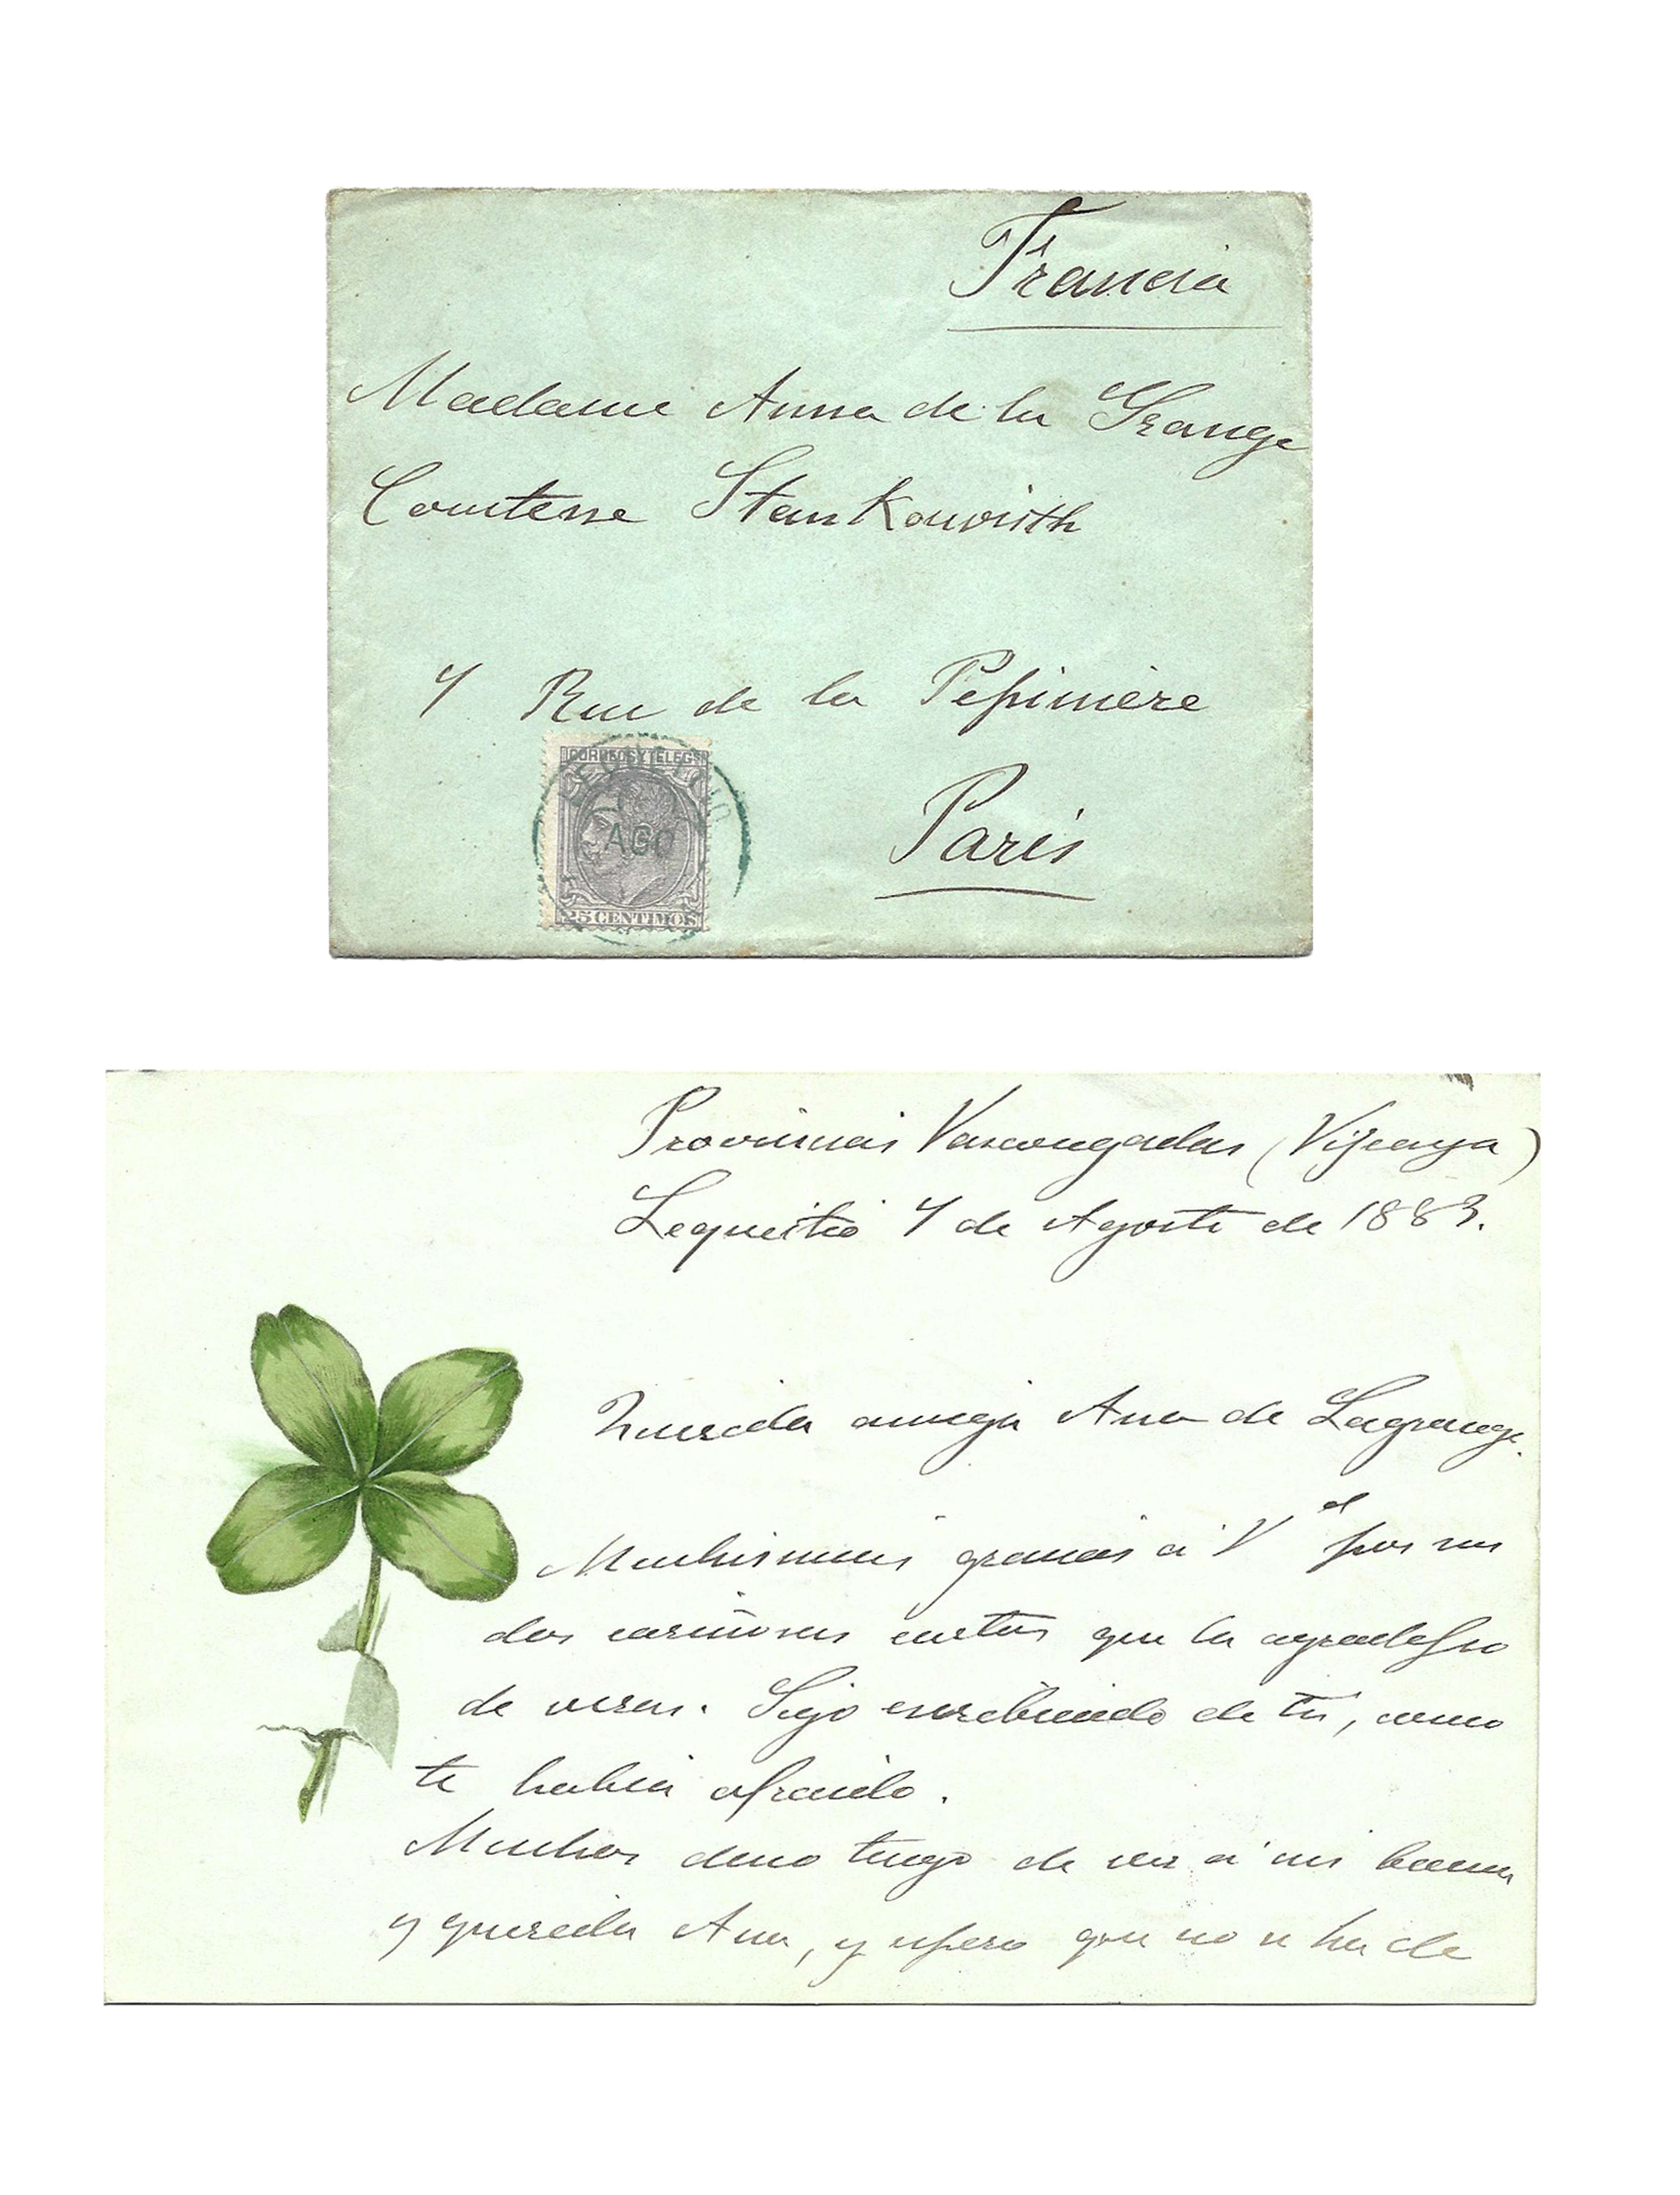 Francia
Madame Anna de la Grange
Comtesse Stankowith
7 Rue de la Pepinière
Paris
CORREOS Y TELEGS
LEQUEITIO
AGO
25 CENTIMOS
Provincias Vascongadas (Vizcaya)
Lequeitio 7 de Agosto de 1883.
Querida amiga Ana de Lagrange.
Muchisimas gracias á V por sus
dos cariñosas cartas que la agradezco
de veras. Sigo escribiendo de tú, como
te habia ofrecido.
Muchos deseo tengo de ver á mi buena
y querida Ana, y espero que no se ha de